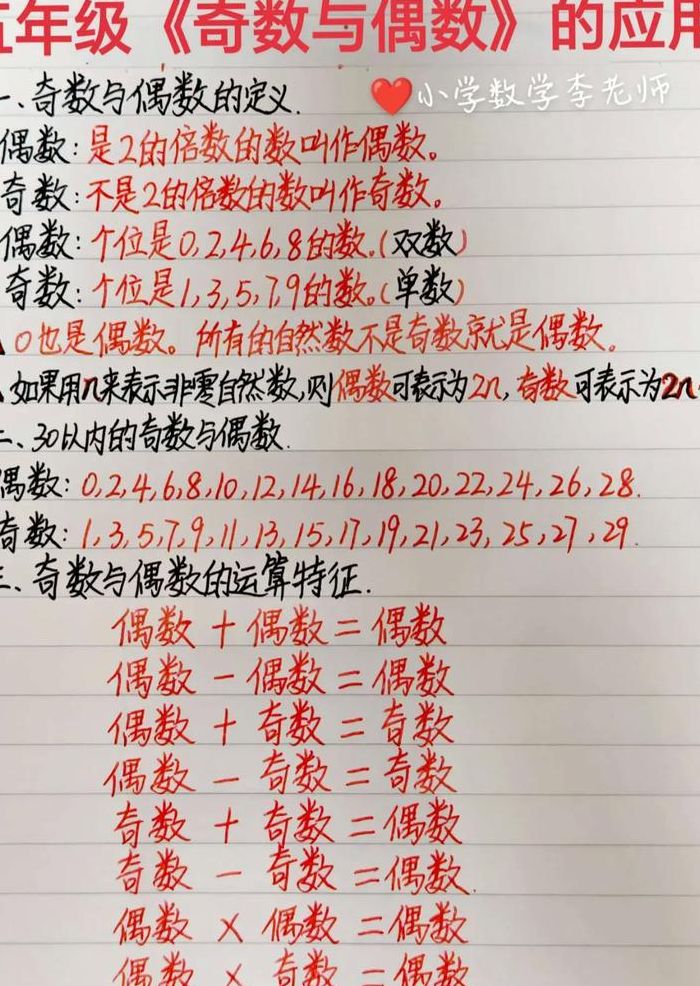 五年级《奇数与偶数》的应用
一、奇数与偶数的定义.
❤️小学数学李老师
偶数:是2的倍数的数叫作偶数。
奇数:不是2的倍数的数叫作奇数。
偶数:个位是0,2,4,6,8的数.(双数)
奇数:个位是1,3,5,7,9的数.(单数)
0也是偶数。所有的自然数不是奇数就是偶数。
如果用n来表示非零自然数,则偶数可表示为2n,奇数可表示为2n
二、30以内的奇数与偶数.
偶数:0,2,4,6,8,10,12,14,16,18,20,22,24,26,28.
奇数:1,3,5,7,9,11,13,15,17,19,21,23,25,27,29.
三、奇数与偶数的运算特征.
偶数+偶数=偶数
偶数-偶数=偶数
偶数+奇数=奇数
偶数-奇数=奇数
奇数+奇数=偶数
奇数-奇数=偶数.
偶数×偶数=偶数
偶数×奇数=偶数